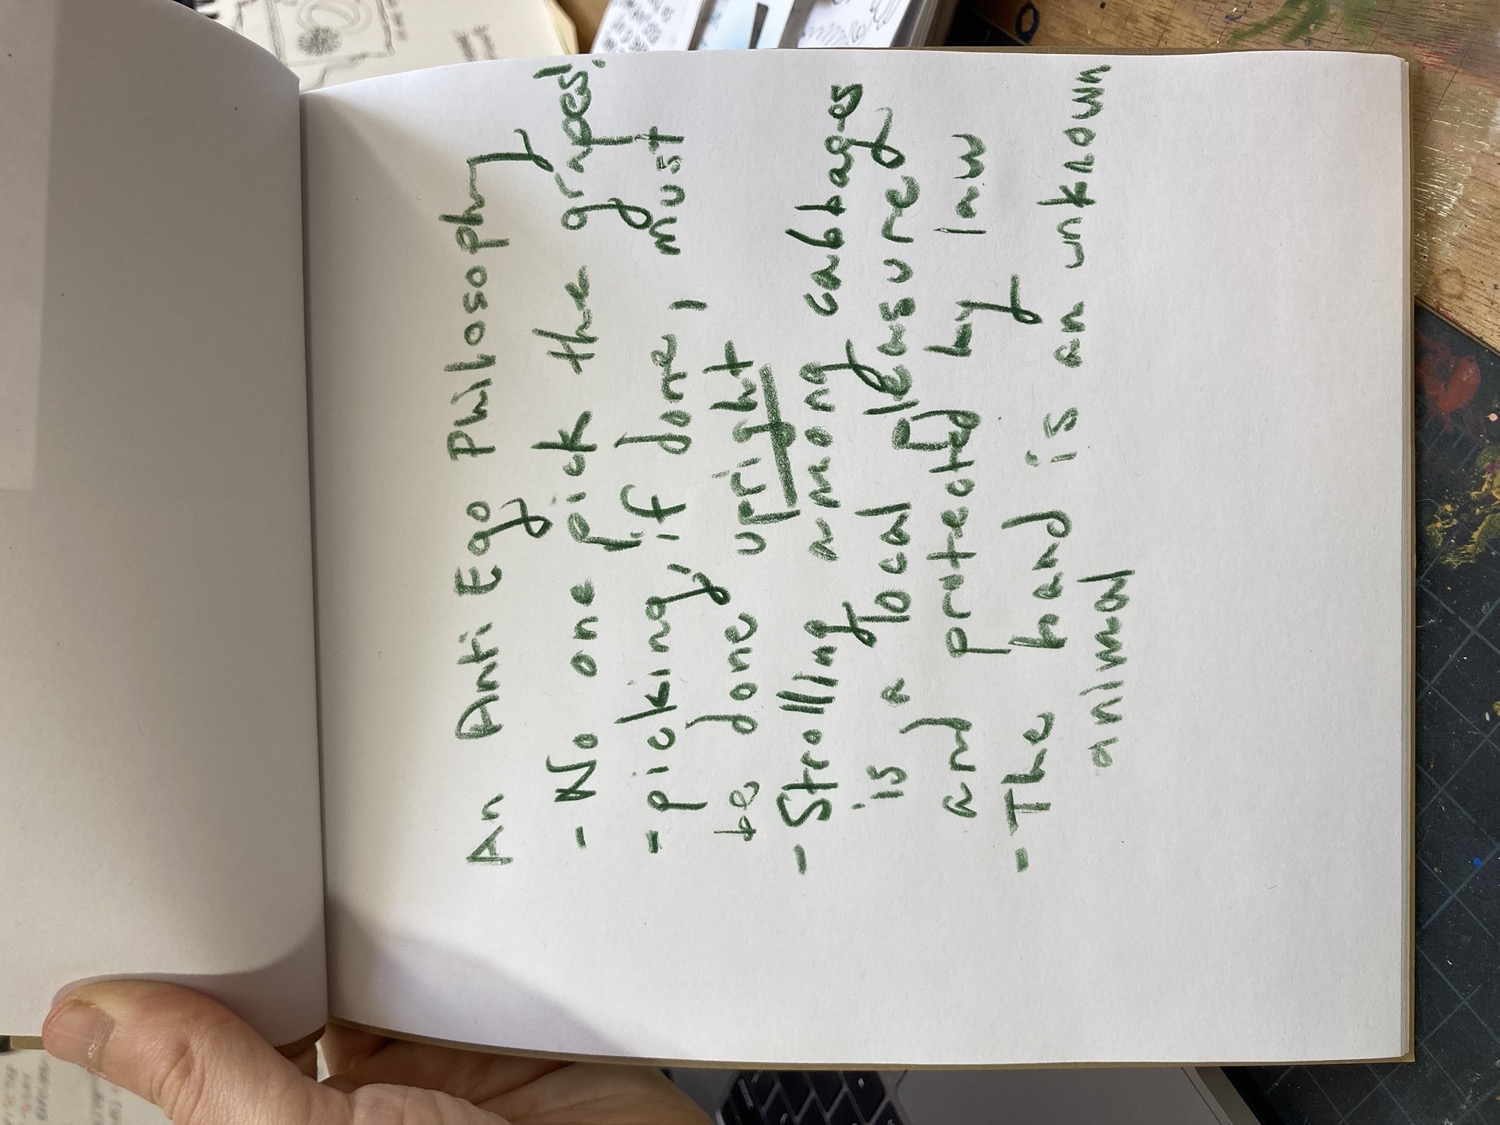 An Anti Ego Philosophy
- No one pick the grapes!
- picking, if done, must
be done upright
- Strolling among cabbages
is a local pleasure
and protected by law
- The hand is an unknown
animal